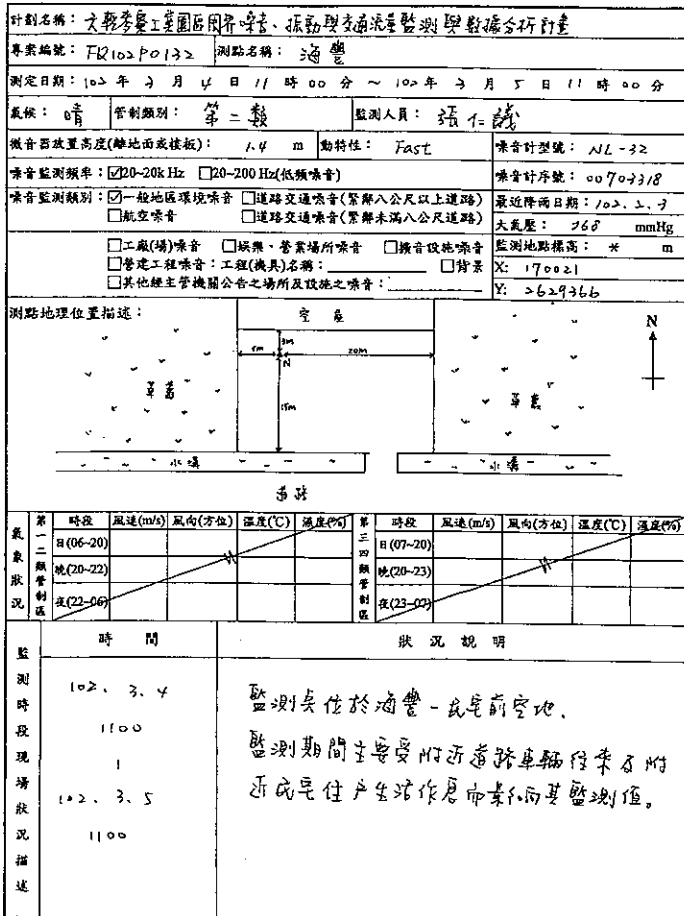 計劃名稱：六輕麥寮工業園區周界噪音、振動與交通流量監測與數據分析計畫
專案編號：FQ102P0132 測點名稱：海豐
測定日期：102 年 3 月 4 日 11 時 00 分 ～ 102 年 3 月 5 日 11 時 00 分
氣候：晴 管制類別：第二類 監測人員：張仁議
微音器放置高度(離地面或樓板)：1.4 m 動特性：Fast 噪音計型號：NL-32
噪音監測頻率：☑20~20k Hz □20~200 Hz(低頻噪音) 噪音計序號：00703318
噪音監測類別：☑一般地區環境噪音 □道路交通噪音(緊鄰八公尺以上道路) 最近降雨日期：102.2.3
□航空噪音 □道路交通噪音(緊鄰未滿八公尺道路) 大氣壓：768 mmHg
□工廠(場)噪音 □娛樂、營業場所噪音 □擴音設施噪音 監測地點標高：* m
□營建工程噪音：工程(機具)名稱： □背景 X: 170021
□其他經主管機關公告之場所及設施之噪音： Y: 2629366
測點地理位置描述：
空屋
N
3m
5m 20m
N
草叢 草叢
15m
水溝 水溝
道路
氣象狀況 第一二類管制區 時段 風速(m/s) 風向(方位) 溫度(℃) 濕度(%) 第三四類管制區 時段 風速(m/s) 風向(方位) 溫度(℃) 濕度(%)
日(06~20) 日(07~20)
晚(20~22) 晚(20~23)
夜(22~06) 夜(23~07)
監測時段現場狀況描述
時間 狀況說明
102.3.4
1100
|
102.3.5
1100
監測點位於海豐一民宅前空地.
監測期間主要受附近道路車輛往來及附
近民宅住戶生活作息而影響其監測值。